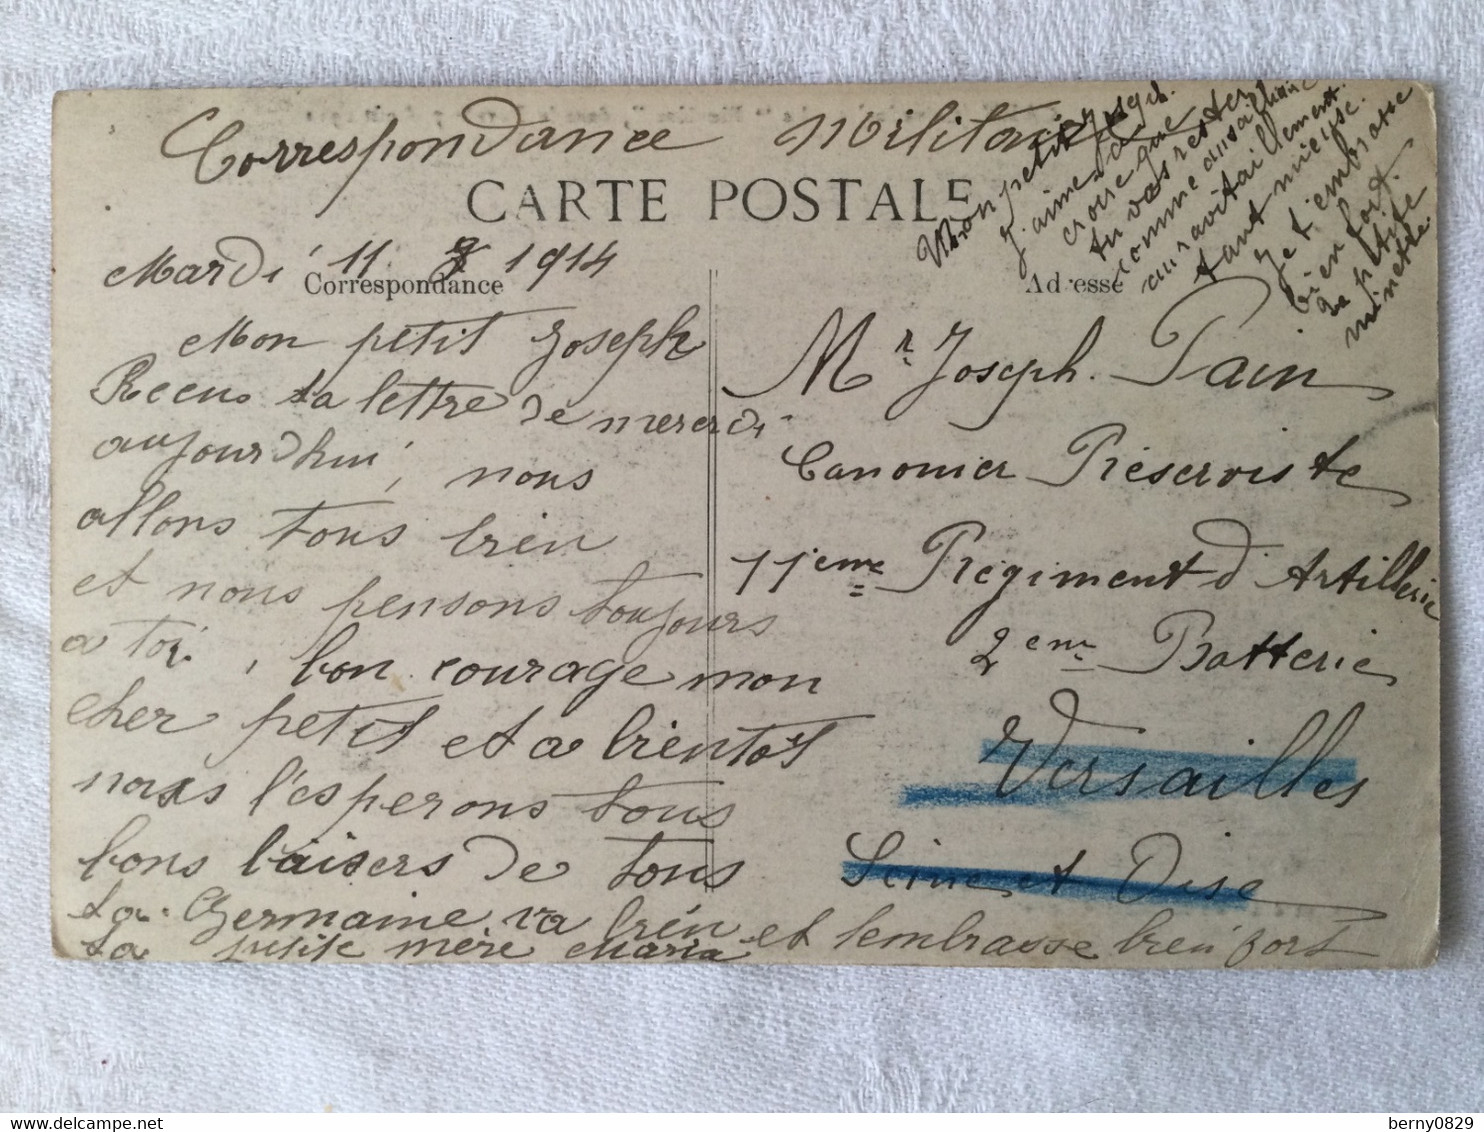 Correspondance Militaire
CARTE POSTALE
Correspondance
Adresse
Mardi 11 8 1914
Mon petit Joseph
Recu ta lettre de mercredi
aujourdhui, nous
allons tous bien
et nous pensons toujours
a toi, bon courage mon
cher petit et a bientot
nous l'esperons tous
bons baisers de tous
ta Germaine va bien et t'embrasse bien fort
ta petite mère Maria
Mon petit Joseph.
j'aime à
croire que
tu vas rester
comme
au ravitaillement.
tant mieuse.
Je t'embrasse
bien fort.
Ta petite
minette
Mr. Joseph. Pain
Canonier Réserviste
11eme Régiment d'Artillerie
2eme Batterie
Versailles
Seine et Oise
berny0829